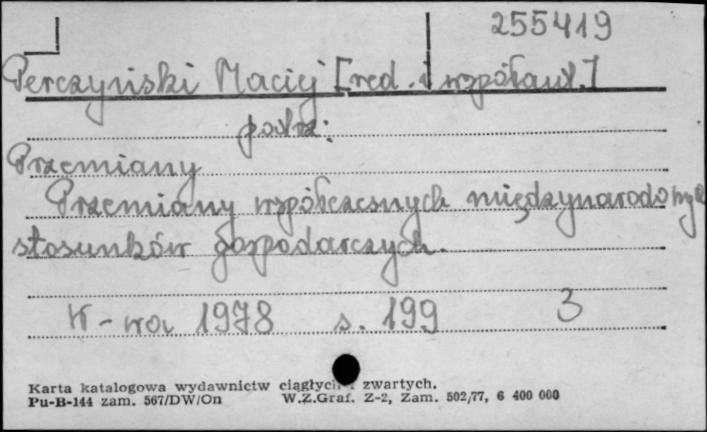 255419
Perczyński Maciej [red. i współaut.]
patrz:
Przemiany
Przemiany współczesnych międzynarodowych
stosunków gospodarczych.
W-wa 1978 s. 199 3
Karta katalogowa wydawnictw ciągłych i zwartych.
Pu-B-144 zam. 567/DW/On W.Z.Graf. Z-2, Zam. 502/77, 6 400 000